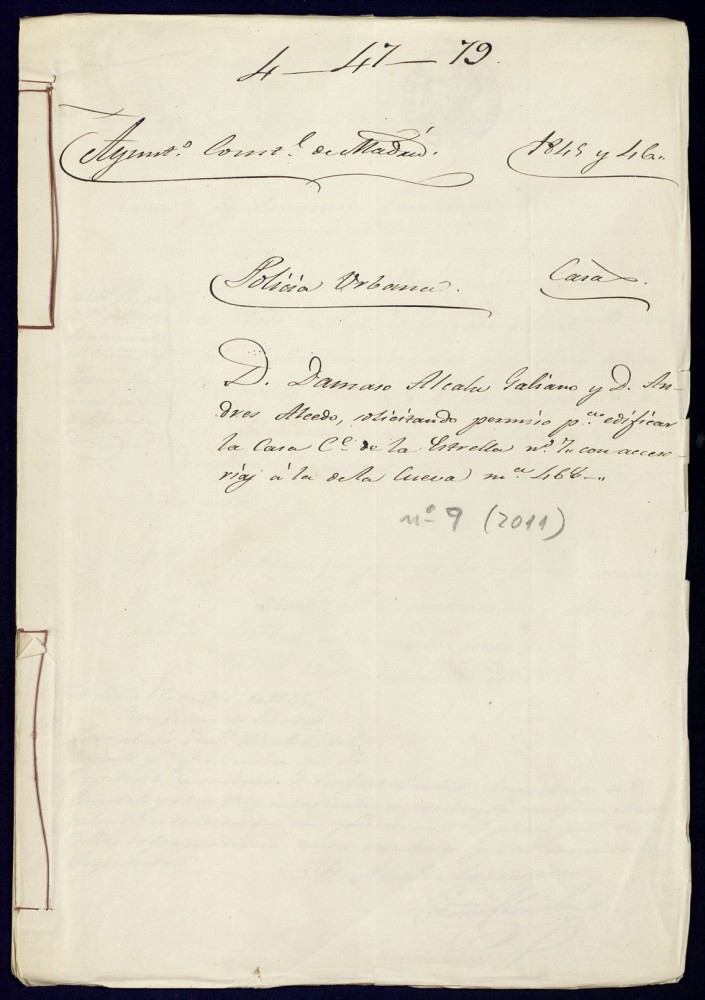 4 — 47 — 79.
Ayunt.º Const.l de Madrid. 1845 y 46.,
Policia Urbana. Casas.
D. Damaso Alcala Galiano y D. An-
dres Alcedo, solicitando permiso p.ª edificar
la Casa C.e de la Estrella n.º 7,, con acceso-
rias á la de la Cueva m.ª 468—,,
nº 9 (2011)